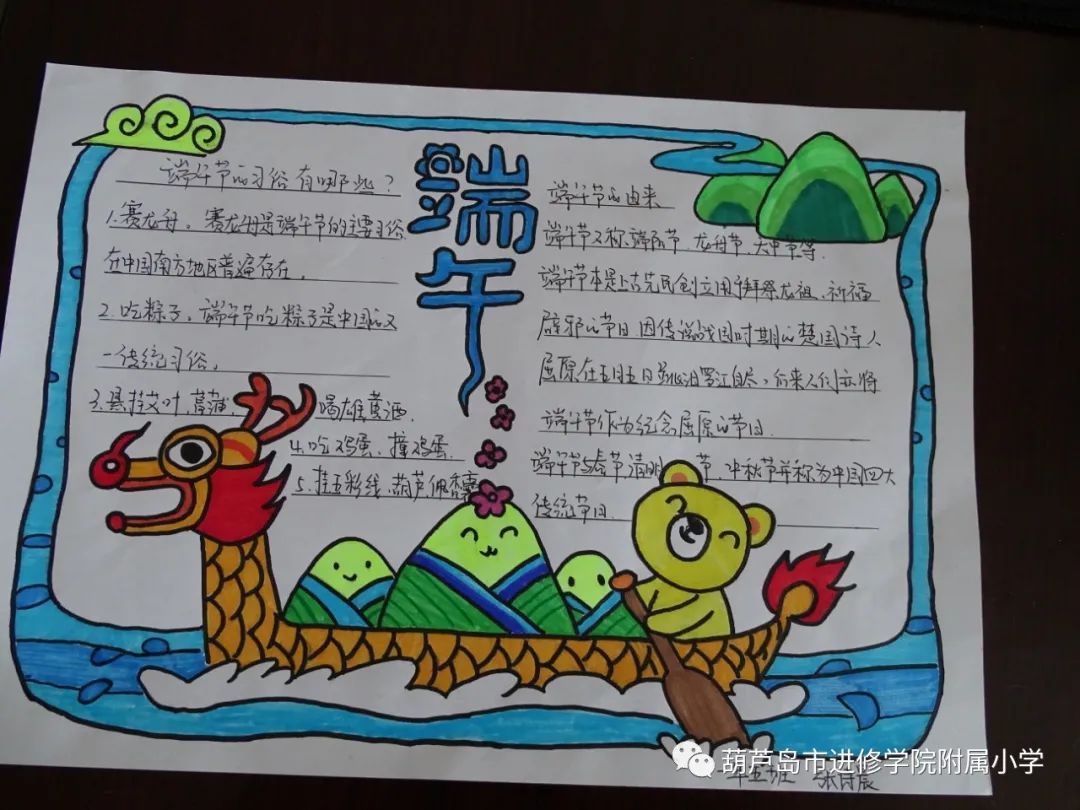 端午
端午节的习俗有哪些?
1.赛龙舟。赛龙舟是端午节的主要习俗.
在中国南方地区普遍存在。
2.吃粽子。端午节吃粽子是中国的又
一传统习俗。
3.悬挂艾叶、菖蒲、喝雄黄酒.
4.吃鸡蛋、撞鸡蛋.
5.挂五彩线、葫芦、佩香囊
端午节的由来
端午节又称端阳节、龙舟节、天中节等.
端午节本是上古先民创立用于拜祭龙祖、祈福
辟邪的节日.因传说战国时期的楚国诗人
屈原在五月五日跳汨罗江自尽,后来人们亦将
端午节作为纪念屈原的节日.
端午节与春节、清明节、中秋节并称为中国四大
传统节日.
五班 张
葫芦岛市进修学院附属小学